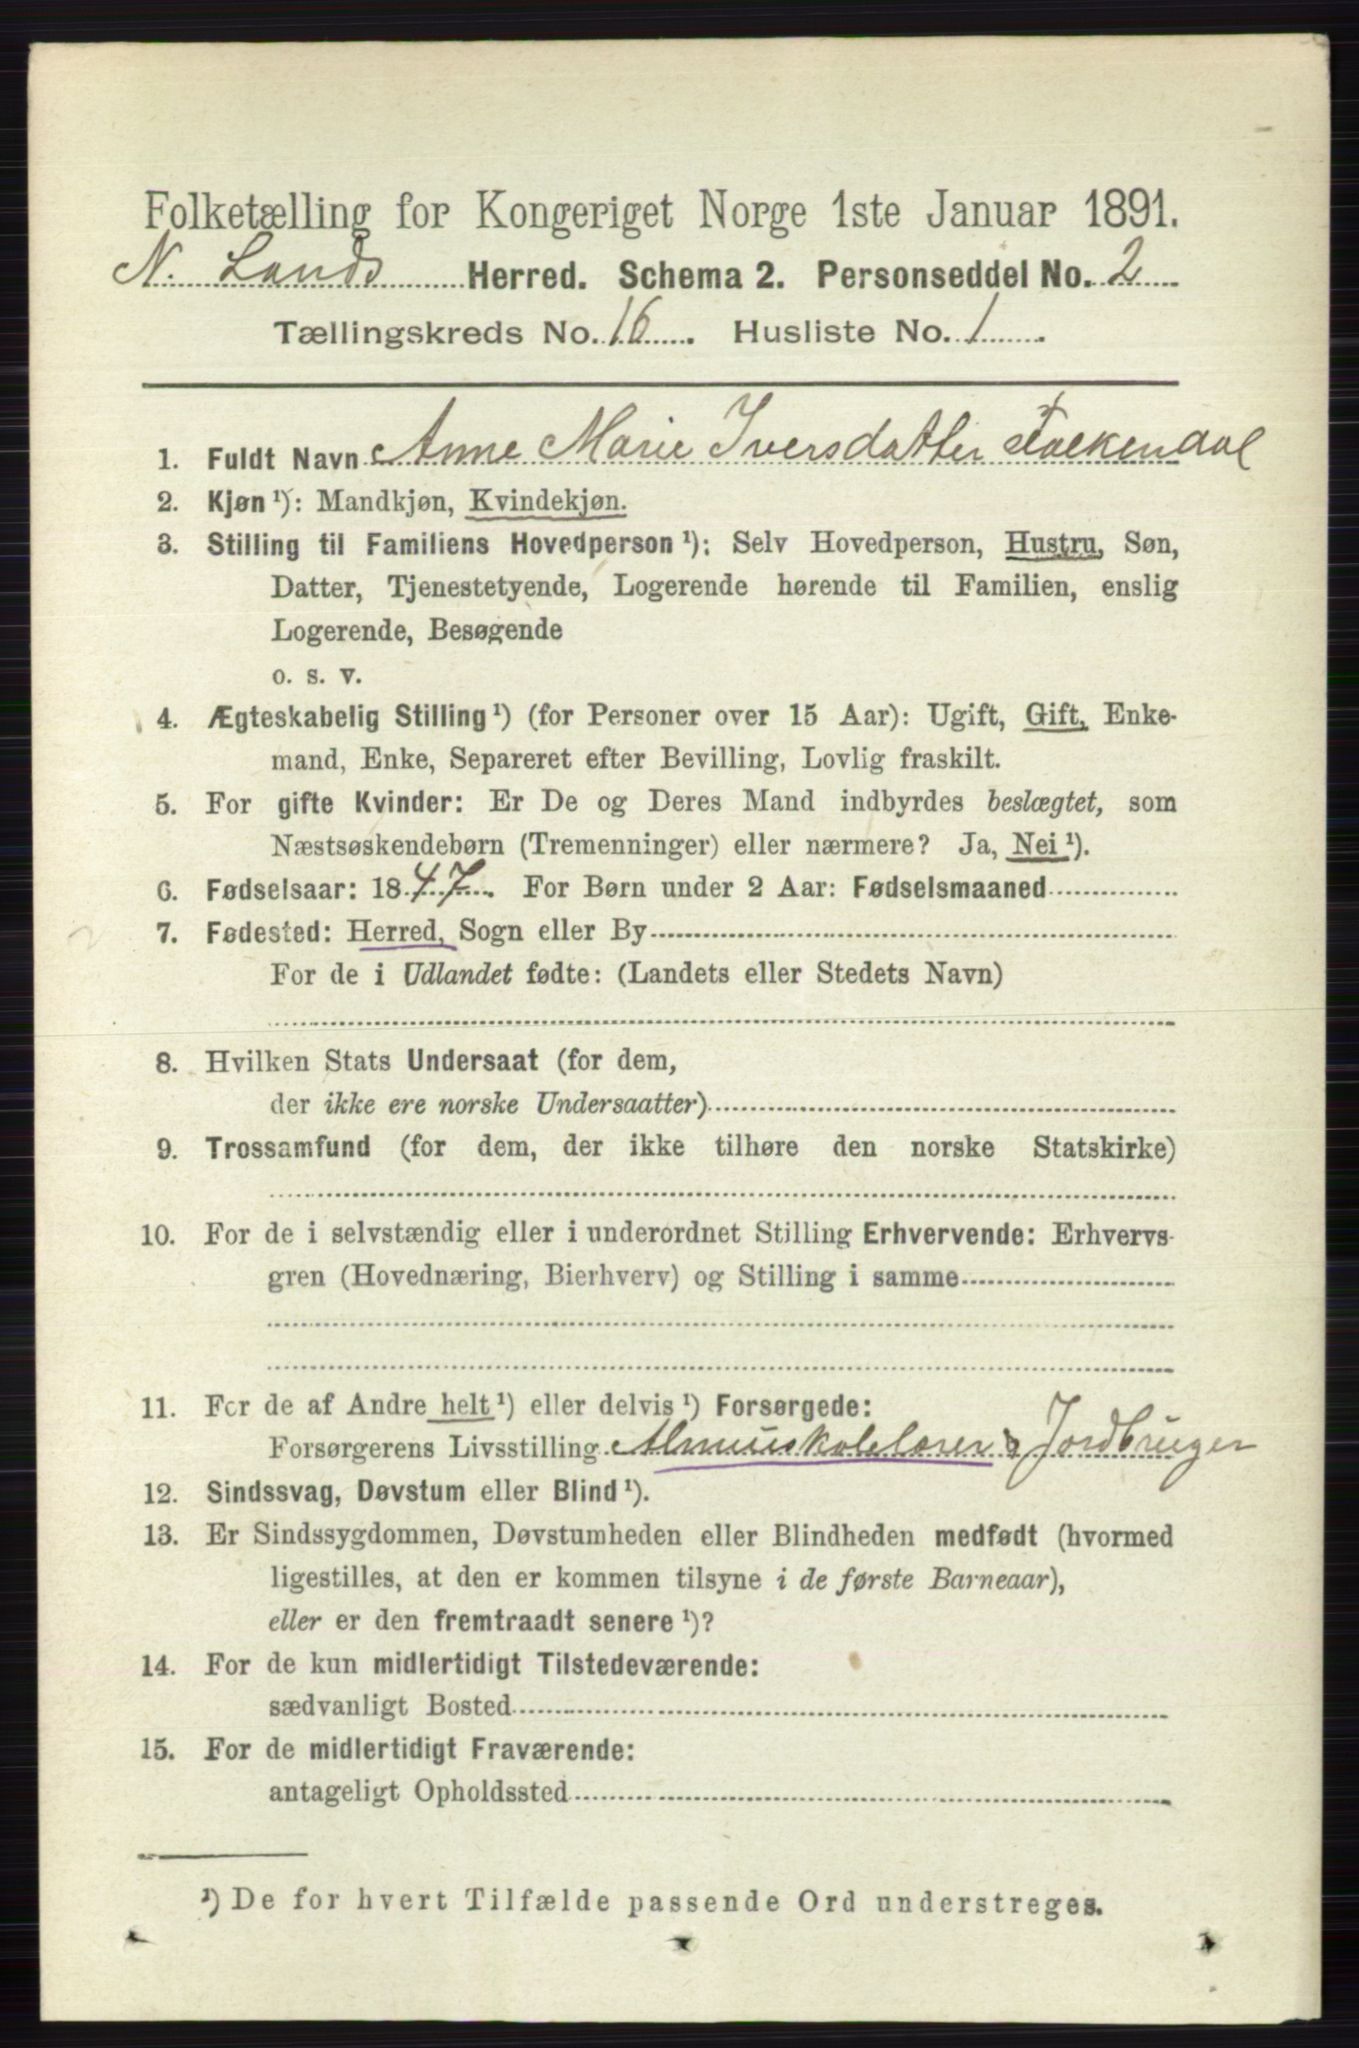 Folketælling for Kongeriget Norge 1ste Januar 1891.
N. Lands Herred. Schema 2. Personseddel No. 2
Tællingskreds No. 16. Husliste No. 1.
1. Fuldt Navn Anne Marie Iversdatter
2. Kjøn ¹): Mandkjøn, Kvindekjøn.
3. Stilling til Familiens Hovedperson ¹): Selv Hovedperson, Hustru, Søn,
Datter, Tjenestetyende, Logerende hørende til Familien, enslig
Logerende, Besøgende
o. s. v.
4. Ægteskabelig Stilling ¹) (for Personer over 15 Aar): Ugift, Gift, Enke-
mand, Enke, Separeret efter Bevilling, Lovlig fraskilt.
5. For gifte Kvinder: Er De og Deres Mand indbyrdes beslægtet, som
Næstsøskendebørn (Tremenninger) eller nærmere? Ja, Nei ¹).
6. Fødselsaar: 1847. For Børn under 2 Aar: Fødselsmaaned
7. Fødested: Herred, Sogn eller By
For de i Udlandet fødte: (Landets eller Stedets Navn)
8. Hvilken Stats Undersaat (for dem,
der ikke ere norske Undersaatter)
9. Trossamfund (for dem, der ikke tilhøre den norske Statskirke)
10. For de i selvstændig eller i underordnet Stilling Erhvervende: Erhvervs-
gren (Hovednæring, Bierhverv) og Stilling i samme
11. For de af Andre helt ¹) eller delvis ¹) Forsørgede:
Forsørgerens Livsstilling Almuskolelærer & Jordbruger
12. Sindssvag, Døvstum eller Blind ¹).
13. Er Sindssygdommen, Døvstumheden eller Blindheden medfødt (hvormed
ligestilles, at den er kommen tilsyne i de første Barneaar),
eller er den fremtraadt senere ¹)?
14. For de kun midlertidigt Tilstedeværende:
sædvanligt Bosted
15. For de midlertidigt Fraværende:
antageligt Opholdssted
¹) De for hvert Tilfælde passende Ord understreges.